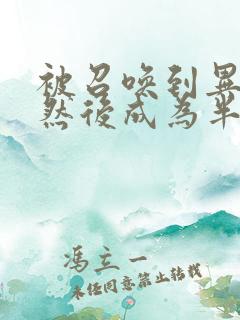 被召唤到异
然后成为半
冯立一
未经同意禁止转载